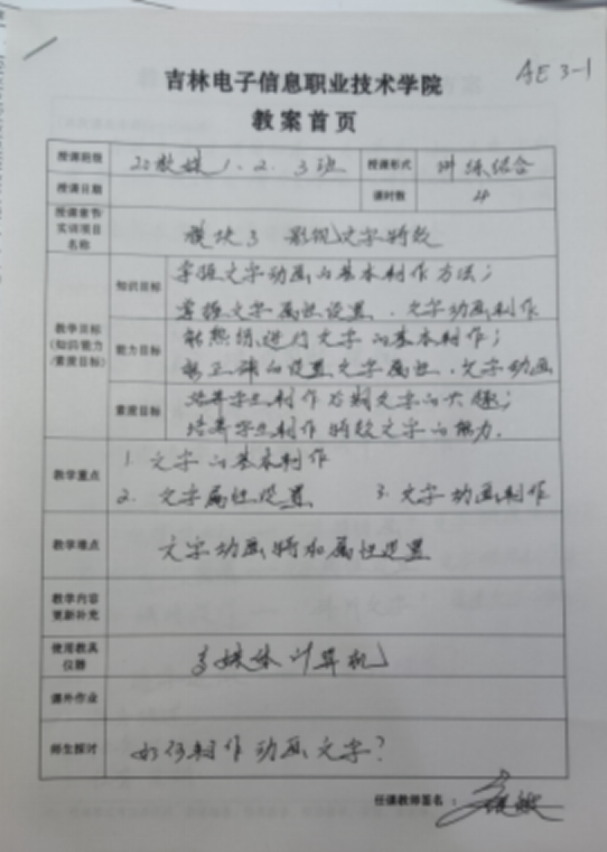 AE 3-1
吉林电子信息职业技术学院
教案首页
授课班级 20数媒1、2、3班 授课形式 讲练结合
授课日期 课时数 4
授课章节/实训项目名称 模块3 影视文字特效
教学目标(知识能力/素质目标)
知识目标 掌握文字动画的基本制作方法;
掌握文字属性设置、文字动画制作
能力目标 能熟练进行文字的基本制作;
能正确的设置文字属性、文字动画
素质目标 培养学生制作特效文字的兴趣;
培养学生制作特效文字的能力.
教学重点 1. 文字的基本制作
2. 文字属性设置 3. 文字动画制作
教学难点 文字动画特加属性设置
教学内容更新补充
使用教具仪器 多媒体计算机
课外作业
师生探讨 如何制作动画文字?
任课教师签名: